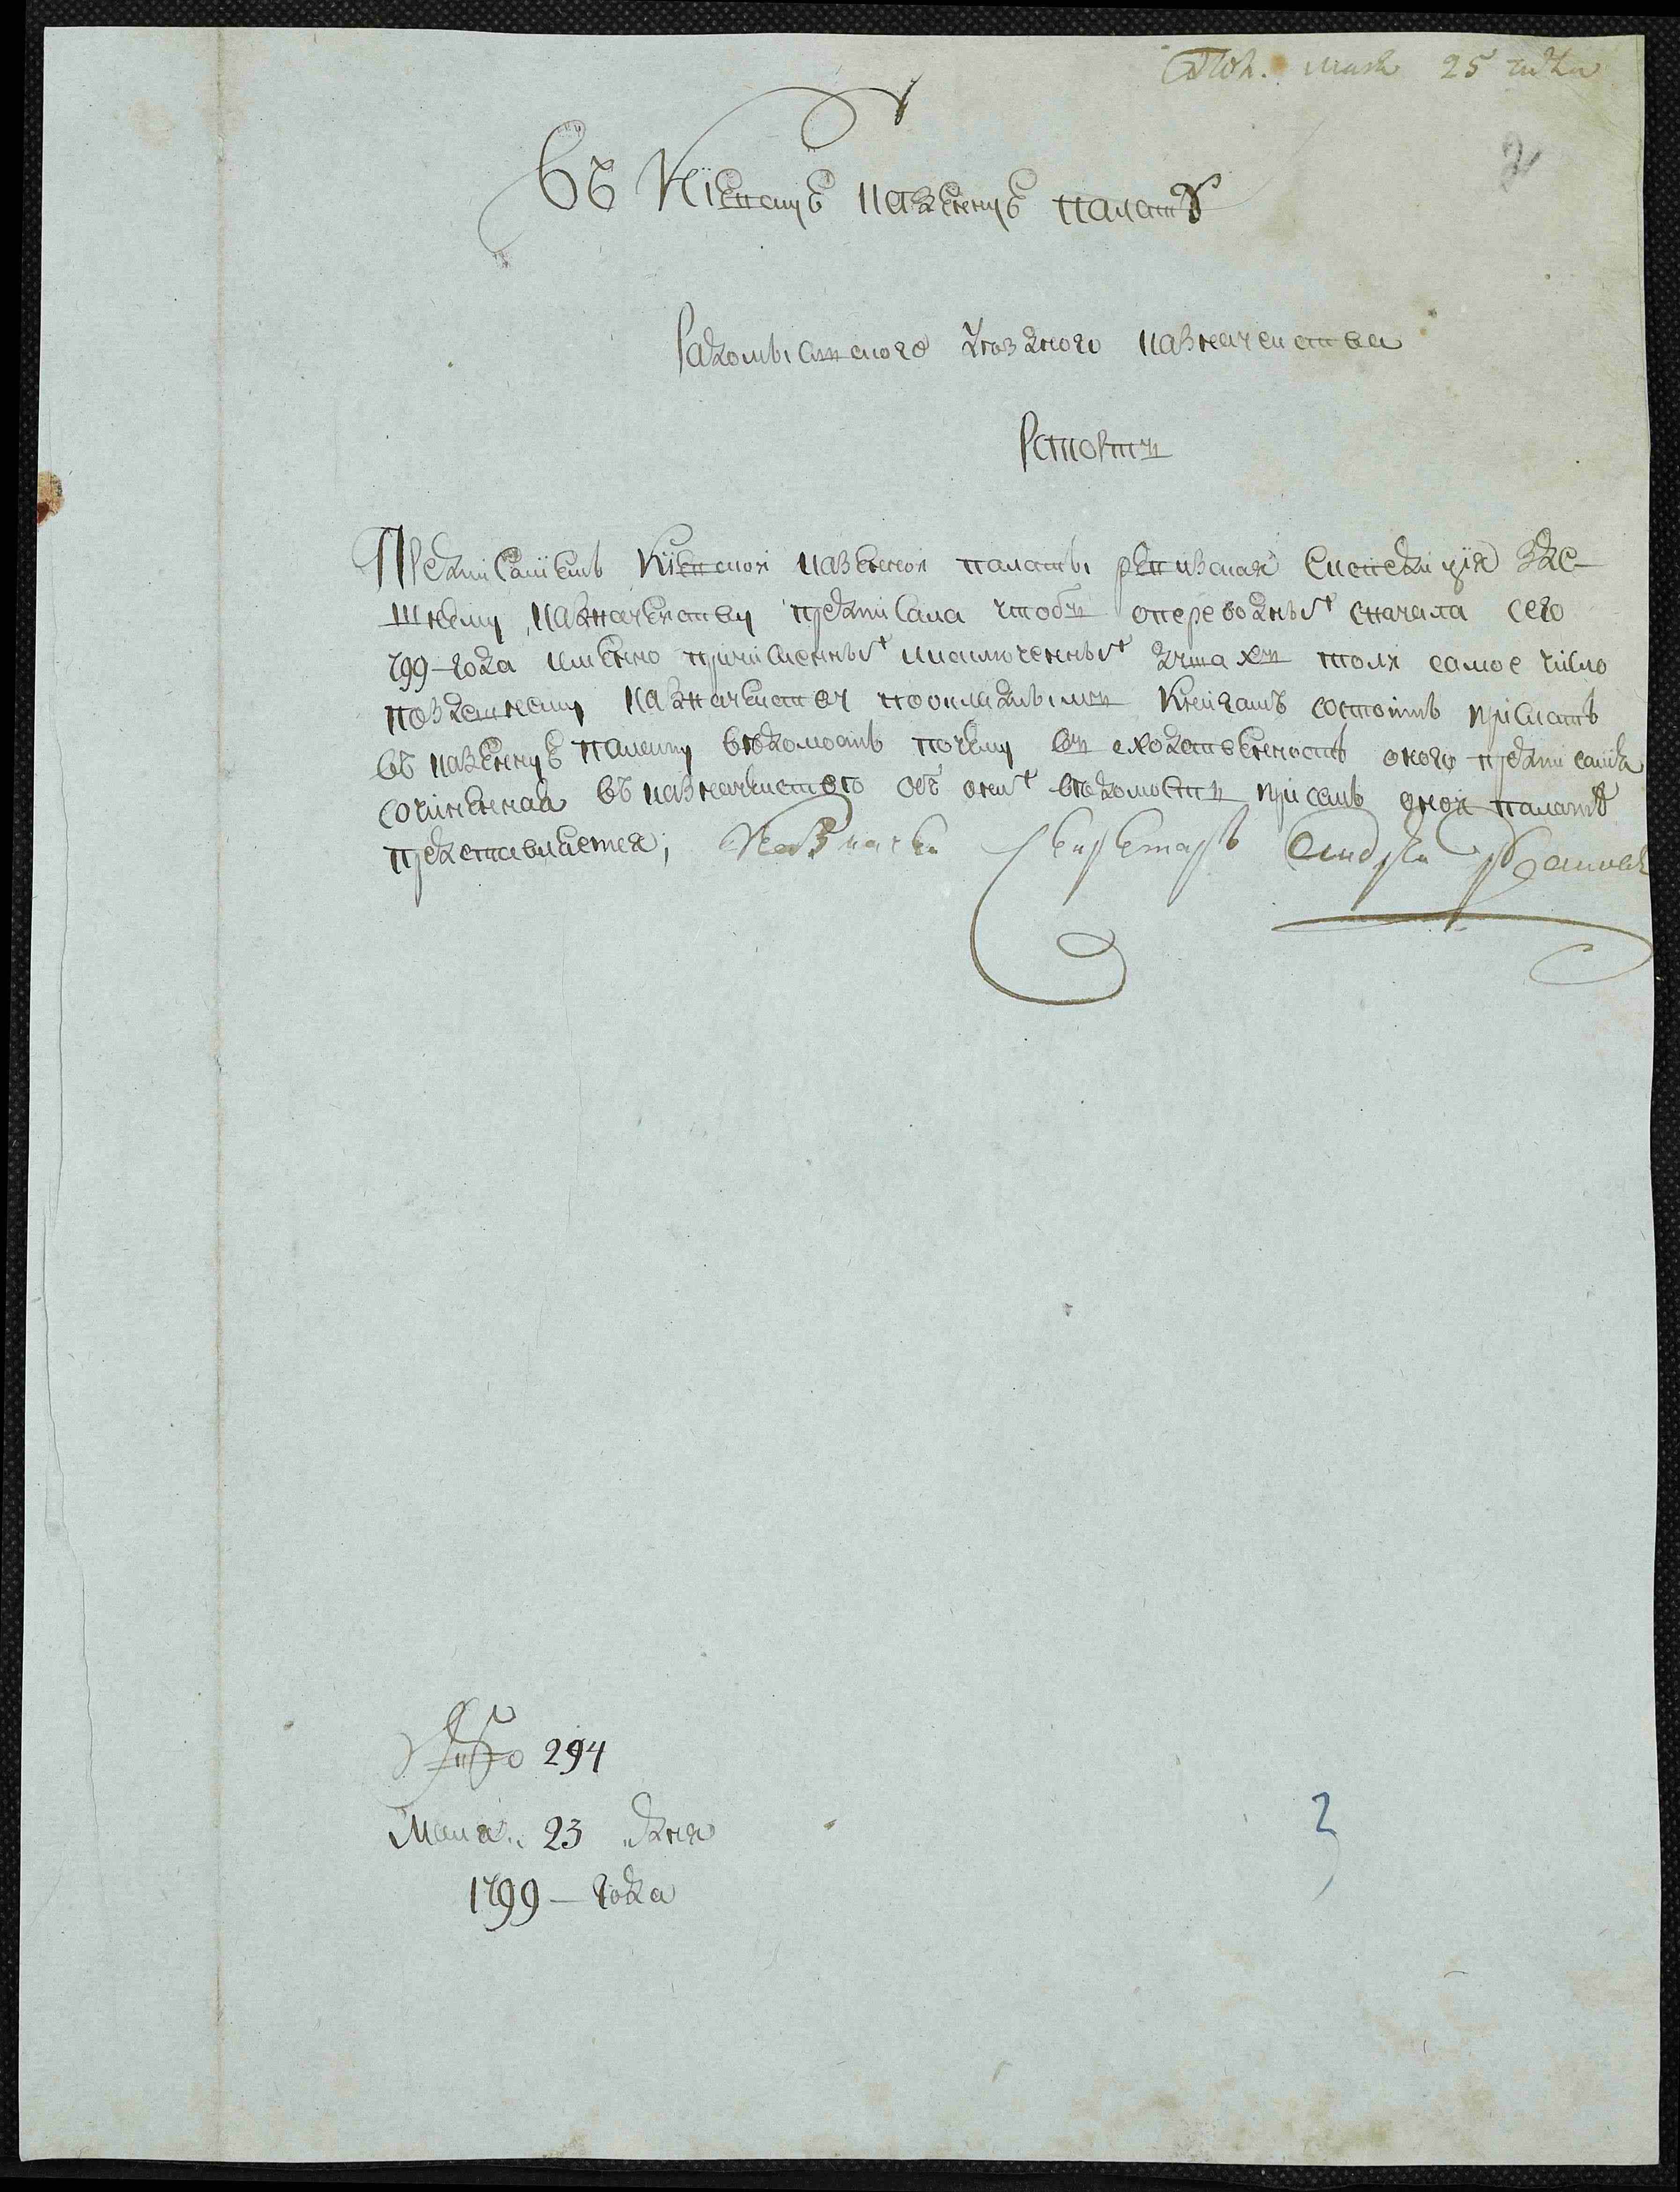 Пол. мая 25 дня
2
Въ Кіевскую казенную палату
Радомысльского уезного казначейства
Рапортъ
Предписаніемъ Кіевской казенной палаты ревизская Експедиція зде-
шнему казначейству предписала чтобъ опереводныхъ сначала сего
799-года именно причисленныхъ иисключенныхъ душахъ толи самое число
поздешнему казначейству поокладнымъ книгамъ состоитъ прислать
въ казенную палату ведомость почему въ сходственность оного предписанія
сочиненная въ казначействе объ оныхъ ведомость при семъ оной палате
представляется; Казначей Секретарь Андрей
№ 294
Мая 23 дня
1799-года
2